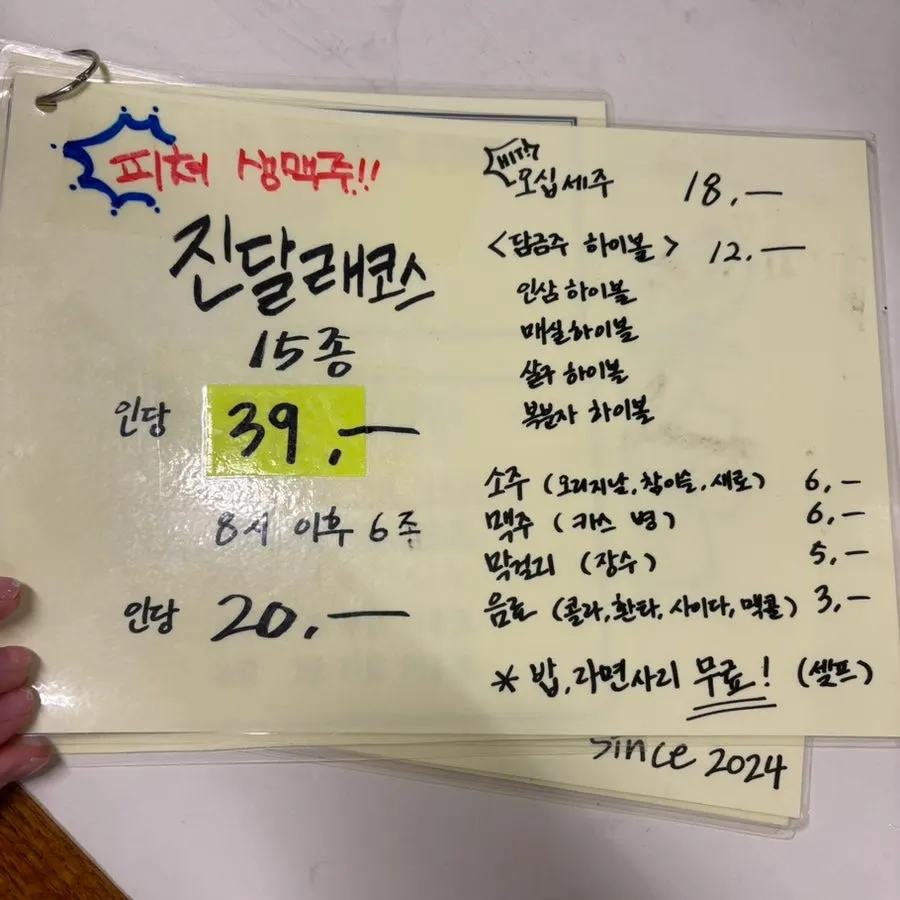 피쳐 생맥주!!
진달래코스
15종
인당 39,—
8시 이후 6종
인당 20,—
HIT!
오십세주 18,—
<담금주 하이볼> 12,—
인삼 하이볼
매실하이볼
살구 하이볼
복분자 하이볼
소주 (오리지날, 참이슬, 새로) 6,—
맥주 (카스 병) 6,—
막걸리 (장수) 5,—
음료 (콜라, 환타, 사이다, 맥콜) 3,—
* 밥, 라면사리 무료! (셀프)
Since 2024